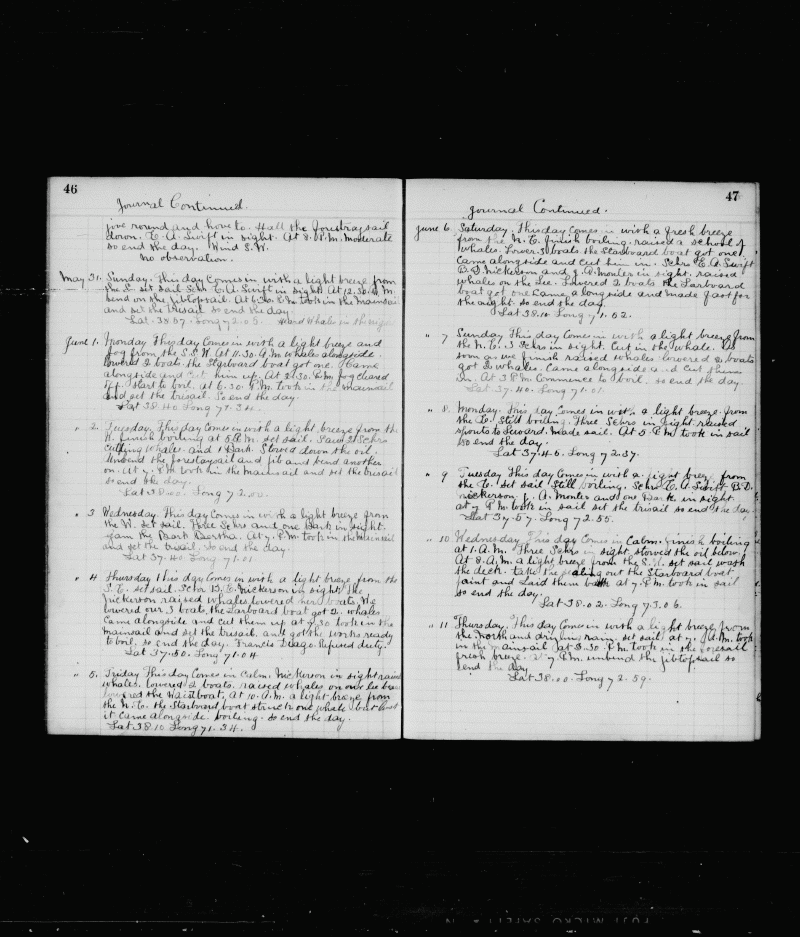 46
Journal Continued.
jove round and hove to. Hall the forestaysail
down. E. A. Swift in sight. At 8. P.M. moderate
so end the day. Wind S.W.
No observation.
May 31. Sunday. This day Comes in with a light breeze from
the S. set sail Schr E. A. Swift in sight. At 12.30. P.M.
bend on the jibtopsail. At 6.30. P.M. took in the mainsail
and set the trisail. so end the day.
Lat. 38.57. Long 72.05. Heard Whales in the night
June 1. Monday This day Comes in with a light breeze and
fog from the S.S.W. At 11.30. A.M. whales alongside.
lowered 2 boats. the Starboard boat got one. Came
alongside and cut him up. At 2.30. P.M. fog cleared
off. start to boil. at 6.30. P.M. took in the mainsail
and set the trisail. So end the day.
Lat 38.40 Long 72.34.
" 2. Tuesday. This day Comes in with a light breeze from the
W. finish boiling at 5 A.M. set sail. Saw 2 Schrs
cutting whales. and 1 Bark. Stowed down the oil.
Unbend the forestaysail and jib and bend another
on. At 7. P.M. took in the mainsail and set the trisail
so end the day.
Lat 38.00. Long 72.00.
" 3 Wednesday. This day Comes in with a light breeze from
the W. set sail. Three Schrs and one Bark in sight.
gam the Bark Bertha. At 7. P.M. took in the mainsail
and set the trisail. so end the day.
Lat 37.40 Long 71.01
" 4 Thursday this day comes in with a light breeze from the
S. E. set sail. Schr B. D. Nickerson in sight. the
Nickerson raised whales, lowered her boats. We
lowered our 3 boats, the Larboard boat got 2. whales.
Came alongside and cut them up at 7.30 took in the
mainsail and set the trisail. and got the works ready
to boil. so end the day. Francis Isago. Refused duty.
Lat 37.50. Long 71.04.
" 5. Friday This day Comes in Calm. Nickerson in sight raised
whales. lowered 2 boats. raised whales on our lee
lowered the Waistboat, At 10. A.M. a light breeze from
the N. E. the Starboard boat struck one whale lost
it came alongside. boiling. so end the day.
Lat 38.10 Long 71.34.
47
Journal Continued.
June 6. Saturday. This day Comes in with a fresh breeze
from the N. E. finish boiling. raised a school of
whales. Lower. 3 boats the Starboard boat got one.
Came alongside and cut him in. Schrs E. A. Swift
B. D. Nickerson and J. A. Monter in sight. raised
whales on the Lee. Lowered 2 boats the Larboard
boat got one came alongside and made fast for
the night. so end the day
Lat 38.10 Long 71.52.
" 7 Sunday This day Comes in with a light breeze from
the N. E. 3 Schrs in sight. Cut in the whale. As
soon as we finish raised whales. lowered 2 boats
got 2 whales. Came alongside and Cut them
In. At 3 P.M Commence to boil. so end the day.
Lat 37.40. Long 71.01.
" 8. Monday. This day Comes in with a light breeze from
the E. Still boiling. Three Schrs in sight raised
spouts to Leward. made sail. At 5 P.M took in sail
so end the day.
Lat 37.46. Long 72.37.
" 9 Tuesday This day Comes in with a light breeze from
the E. set sail still boiling. Schrs E. A. Swift B. D.
Nickerson J. A. Monter and one Bark in sight.
at 7 P.M. took in sail set the trisail so end the day
Lat 37.57. Long 72.55.
" 10 Wednesday This day Comes in Calm. finish boiling
at 1. A.M. Three Schrs in sight. stowed the oil below.
At 8. A.M. a light breeze from the S.W. set sail wash
the deck. take the sealing out the Starboard boat
paint and laid them both at 7. P.M. took in sail
so end the day.
Lat 38.02. Long 73.06.
" 11 Thursday. This day Comes in with a light breeze from
the North and drizling rain. set sail at 7. A.M. took
in the mainsail at 5.30. P.M. took in the foresail
fresh breeze. At 7 P.M. unbend the jibtopsail so
end the day
Lat 38.00 Long 72.59.
FUJI MICRO SAFETY